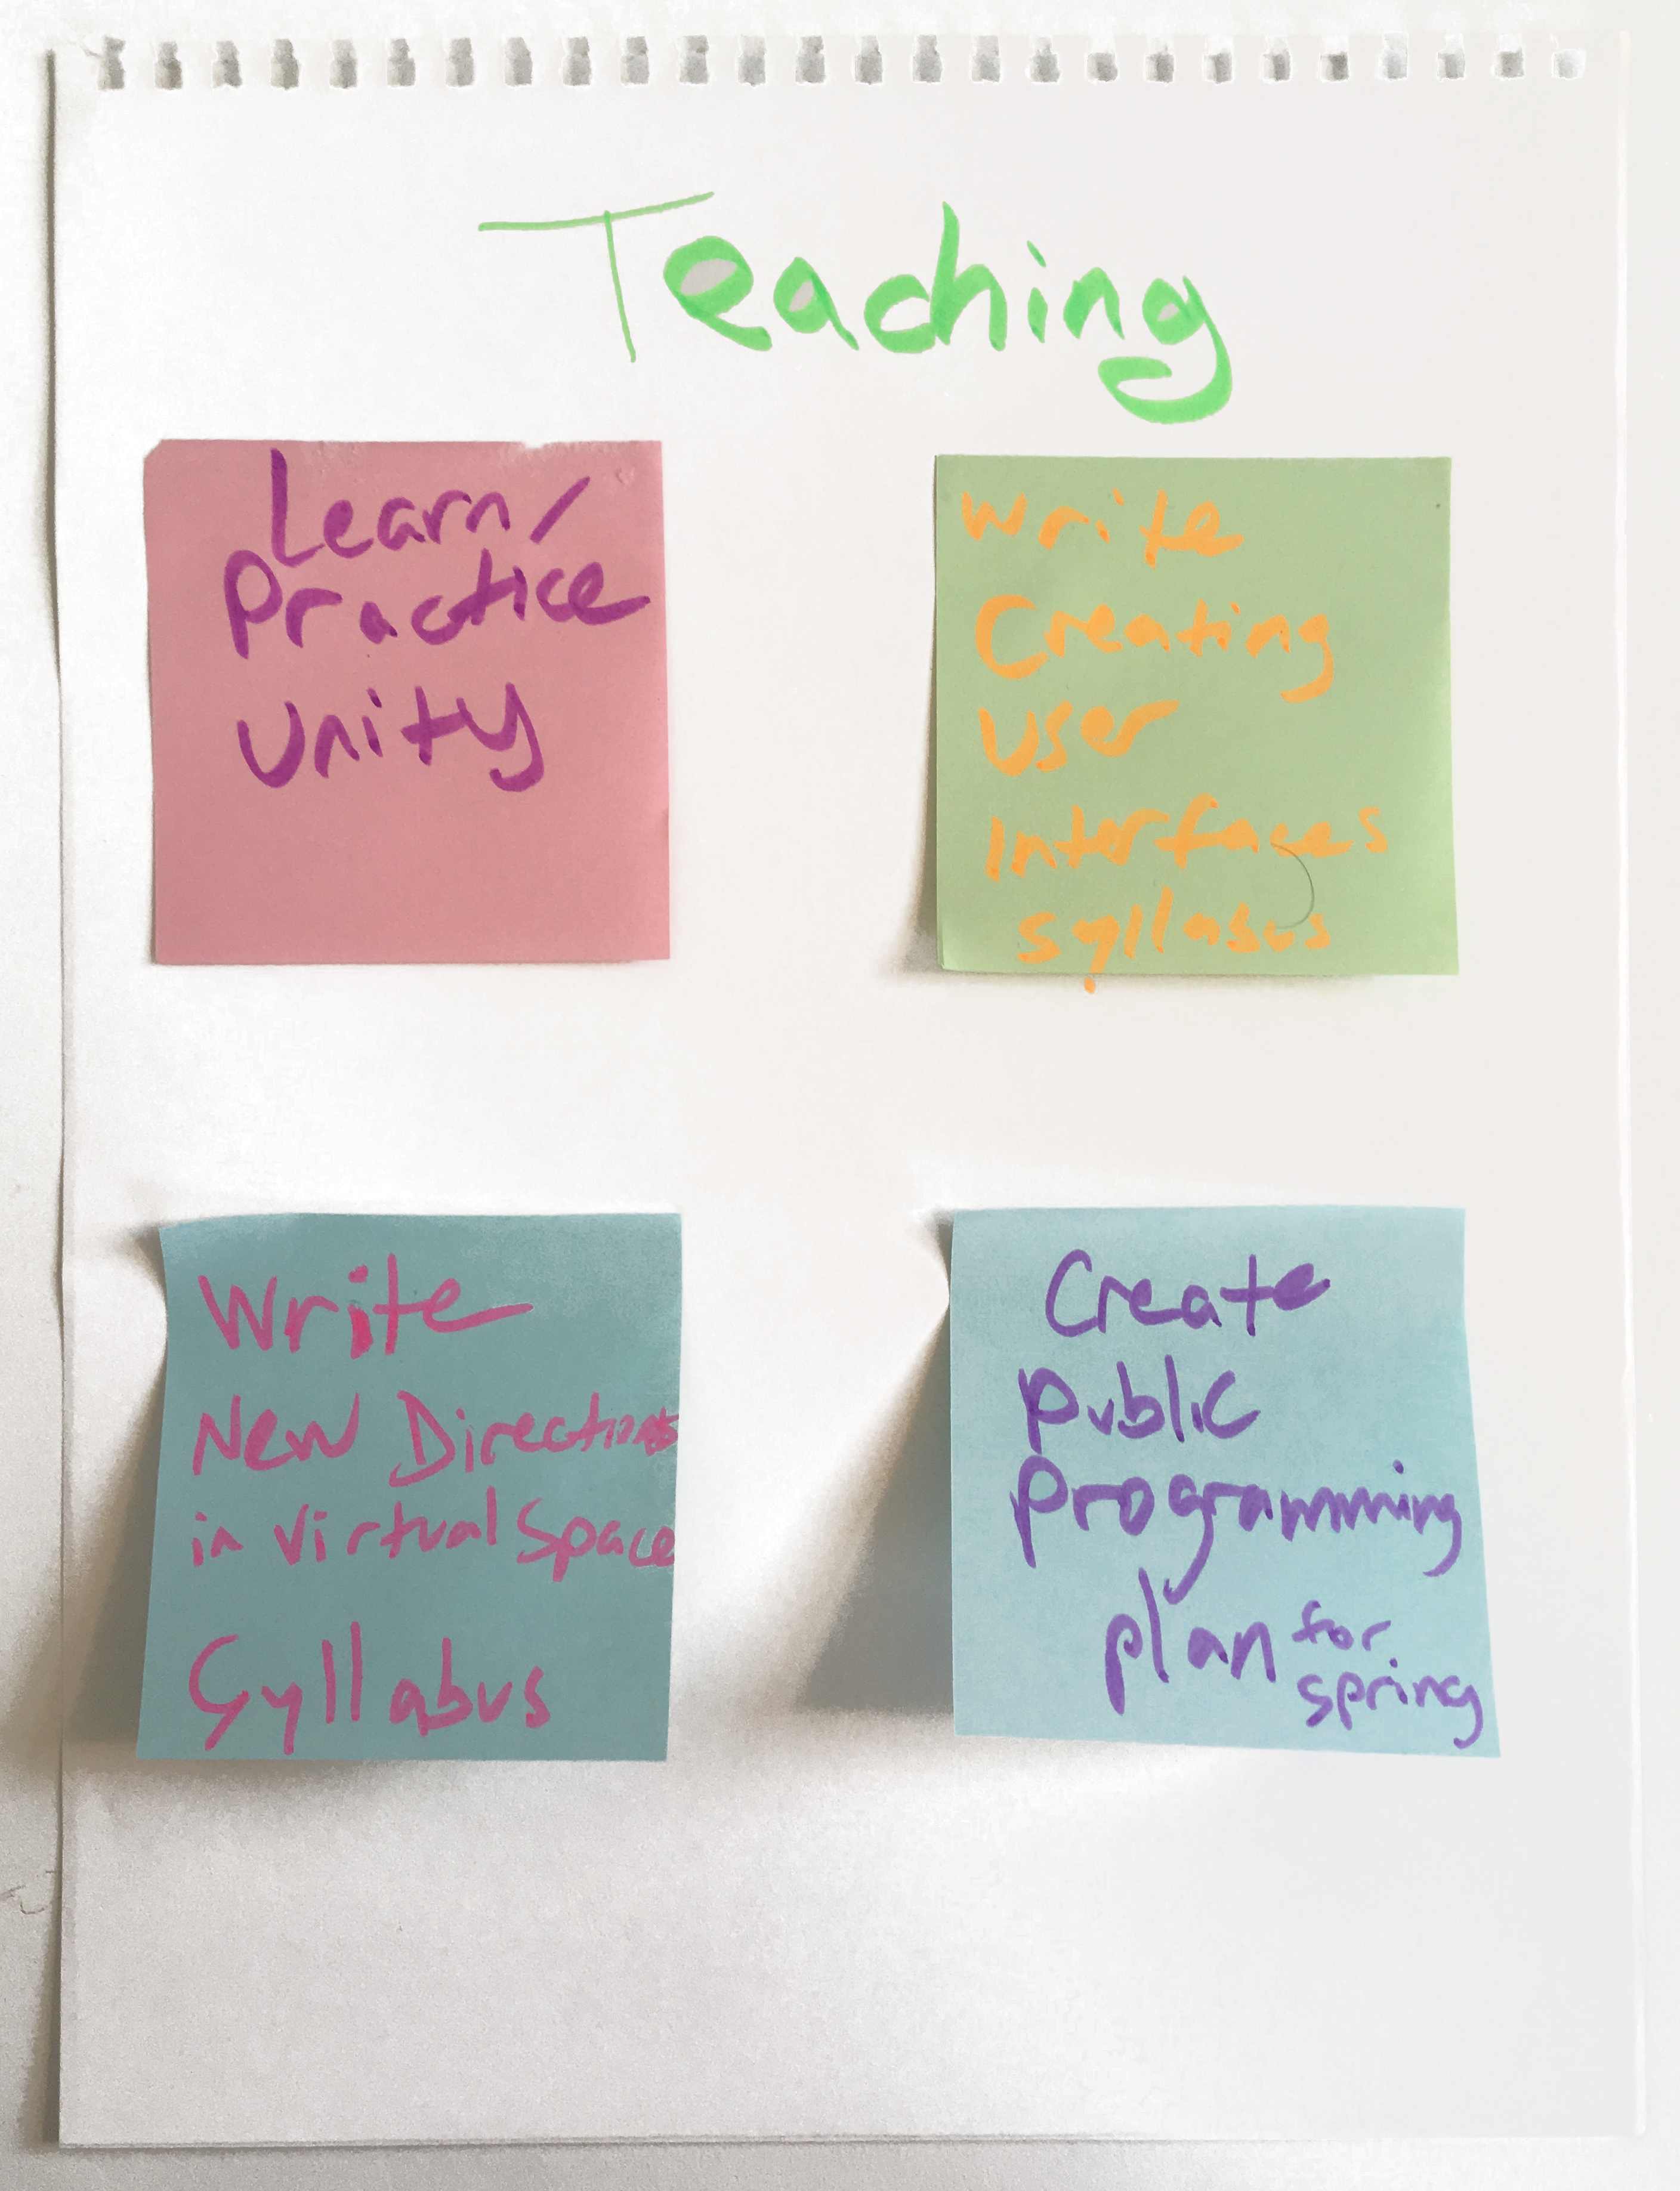 Teaching
Learn/
Practice
Unity
Write
Creating
User
Interfaces
syllabus
Write
New Directions
in Virtual Space
Syllabus
Create
Public
Programming
plan for
spring